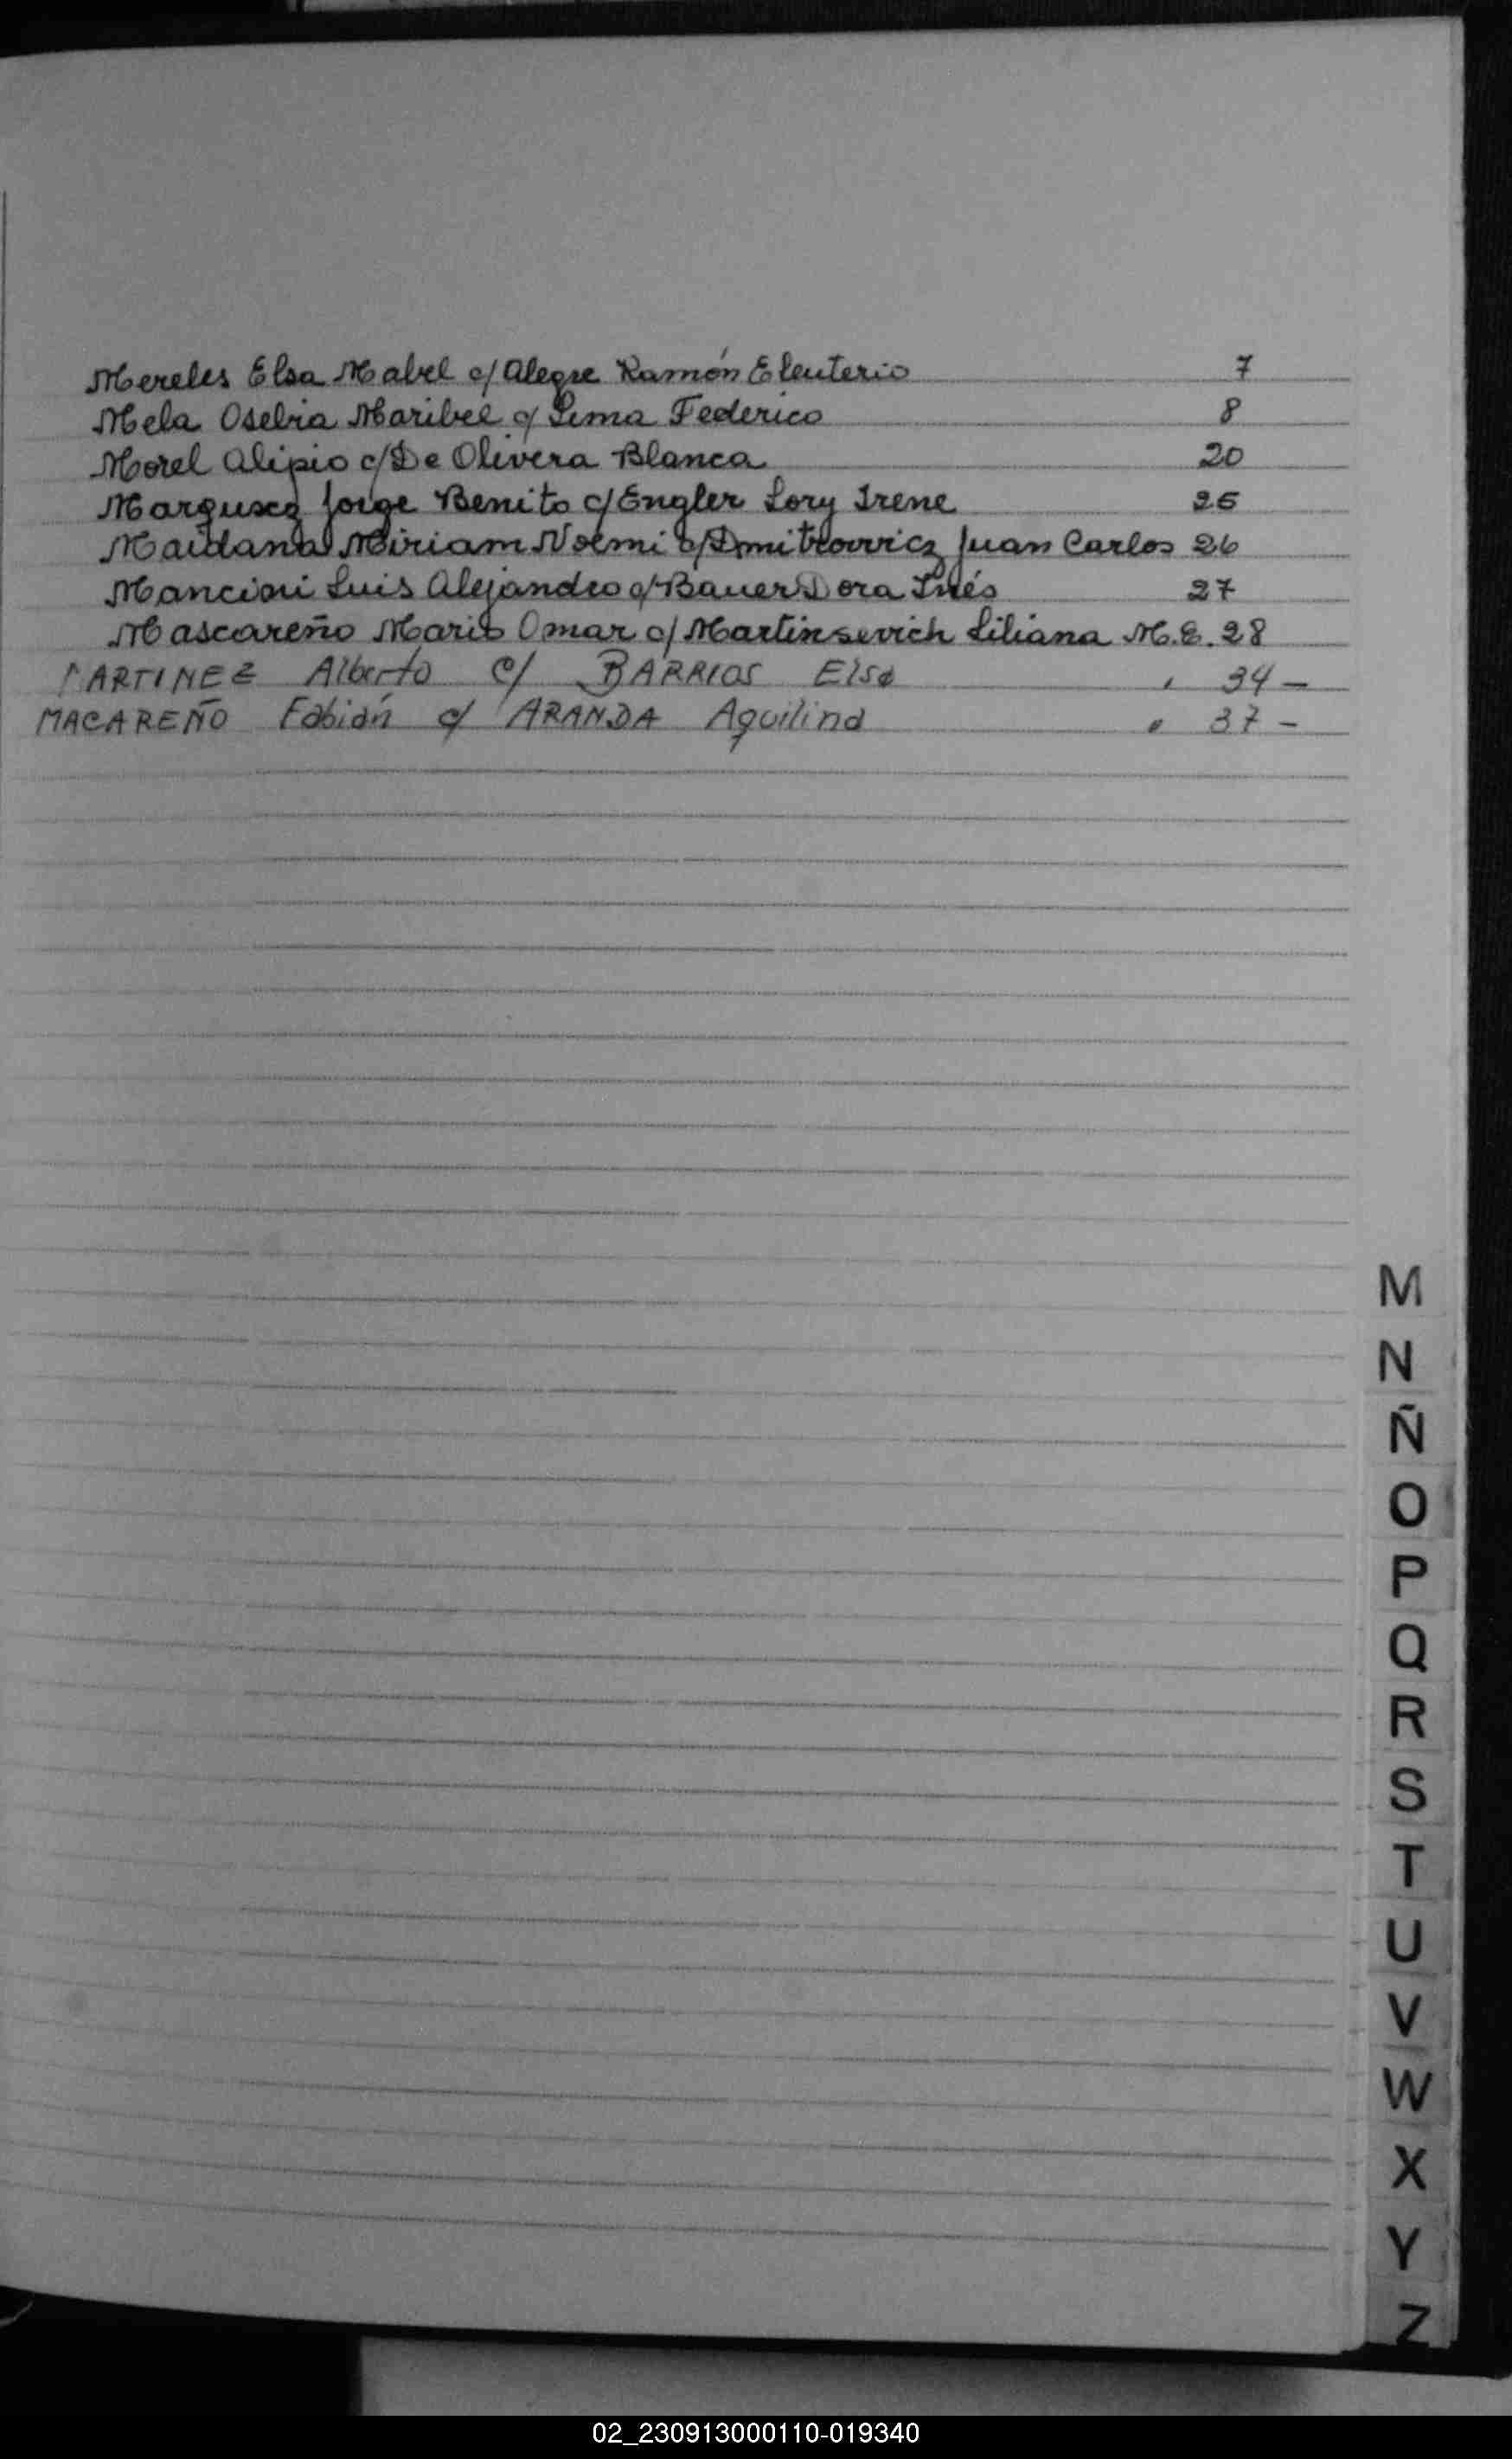 Mereles Elsa Mabel c/ Alegre Ramón Eleuterio 7
Mela Osebia Maribel c/ Lema Federico 8
Morel Alipio c/ De Olivera Blanca 20
Jorge Benito c/ Engler Lory Irene 25
Maidana Miriam Noemi c/ Dmitrowicz Juan Carlos 26
Mancioni Luis Alejandro c/ Bauer Dora Inés 27
Mascareño Mario Omar c/ Martinsevich Liliana M.E. 28
MARTINEZ Alberto c/ BARRIOS Elsa " 34 -
MACAREÑO Fabián c/ ARANDA Aquilina " 37 -
M
N
Ñ
O
P
Q
R
S
T
U
V
W
X
Y
Z
02_230913000110-019340